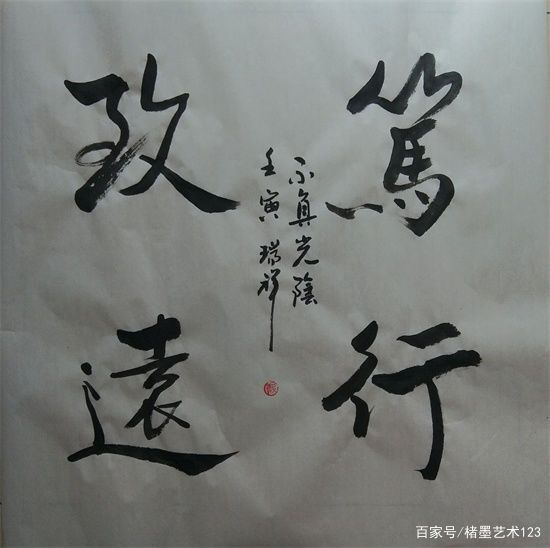 篤行
致遠
不負光陰
壬寅 瑞祥
百家号/楮墨艺术123